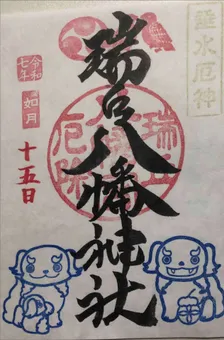 垂水厄神
令和
七年
如月
十五日
瑞丘八幡神社
瑞丘
厄除